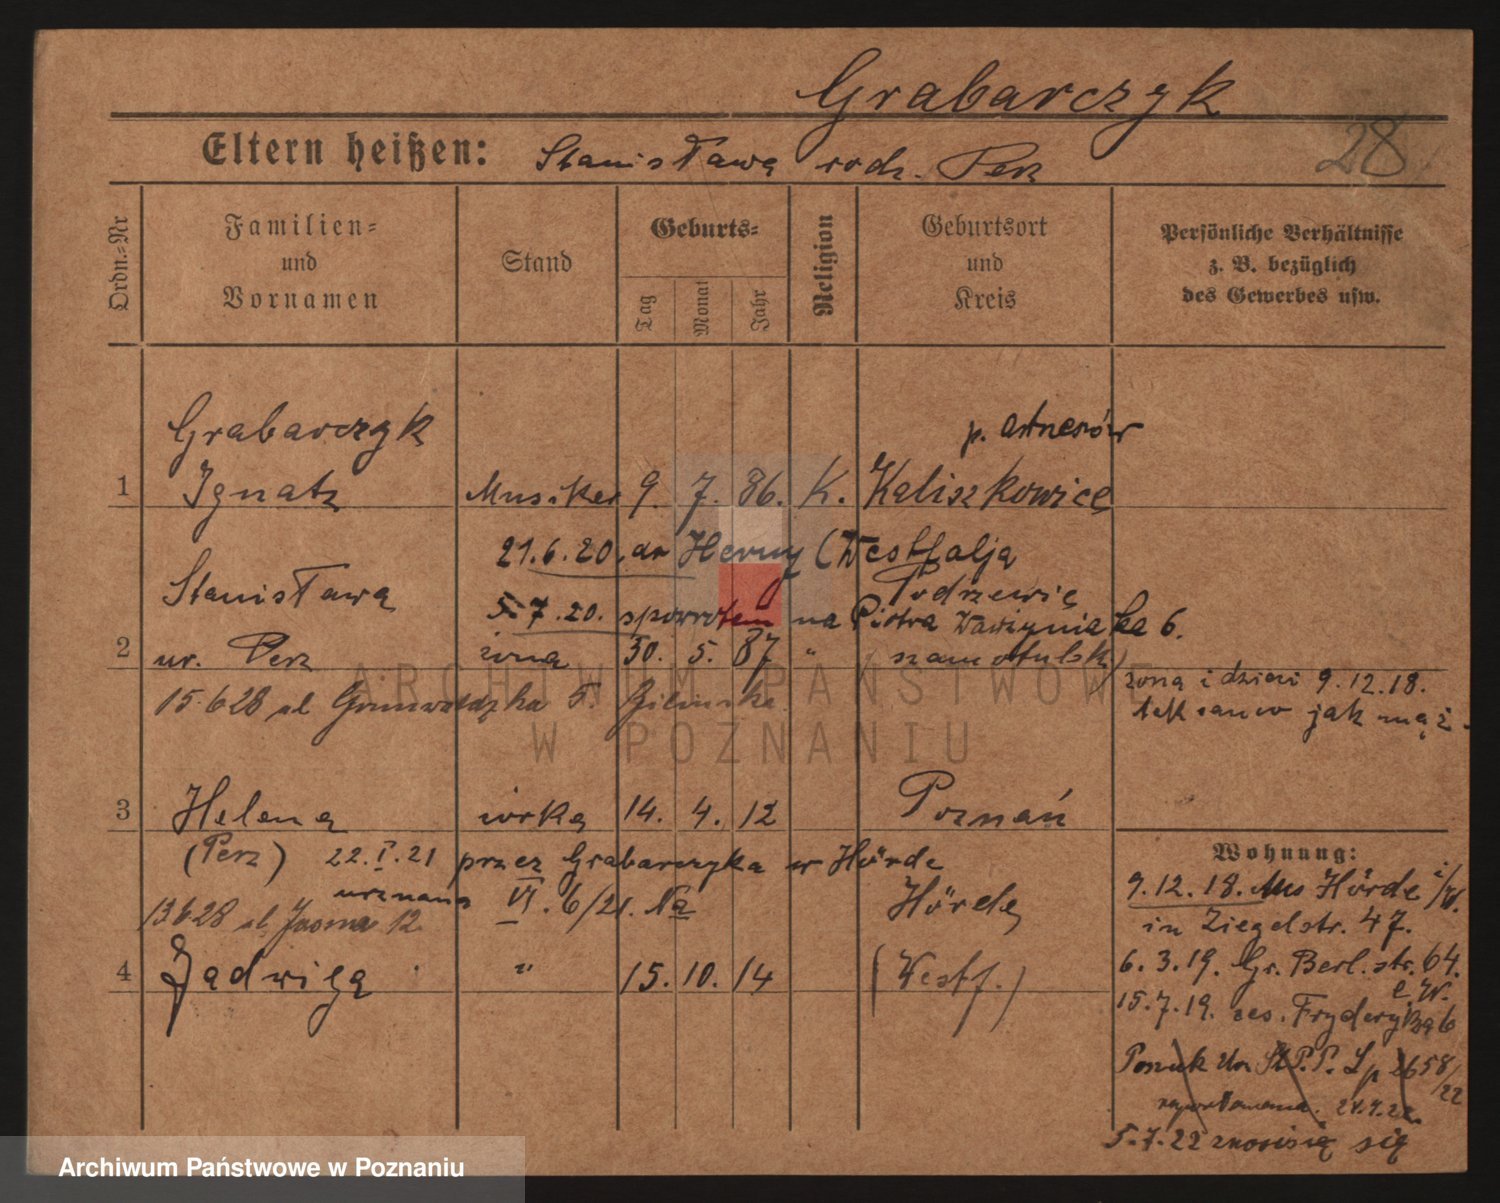 Grabarczyk
28
Eltern heißen: Stanisława rodz. Perz
Ordn.-Nr
Familien-
und
Vornamen
Stand
Geburts-
Tag
Monat
Jahr
Religion
Geburtsort
und
Kreis
Persönliche Verhältnisse
z. B. bezüglich
des Gewerbes usw.
Grabarczyk
p. Ostrzeszów
1 Ignatz Musiker 9. 7. 86. K. Kaliszkowice
21.6.20. do Herny (Westfalja
Stanisława Podrzewie
5.7.20. spowrotem na Piotra Wawrzyniaka 6.
2 ur. Perz żona 30. 5. 87 " szamotulski)
żona i dzieci 9.12.18.
15.6.28 ul Grunwaldzka
tak samo jak mąż.
3 Helena córka 14. 4. 12 Poznań
(Perz) 22.I.21 przez Grabarczyka w Hörde
uznana VI. 6/21. Na
13.6.28 ul. Jasna 12
Hörde
4 Jadwiga " 15. 10. 14 (Westf.)
Wohnung:
9.12.18. Aus Hörde i/W.
in Ziegelstr. 47.
6.3.19. Gr. Berl. str. 64.
15.7.19. Fryderyka 6
P.P. 2658/22
5.7.22 znosi się
ARCHIWUM PAŃSTWOWE
W POZNANIU
Archiwum Państwowe w Poznaniu